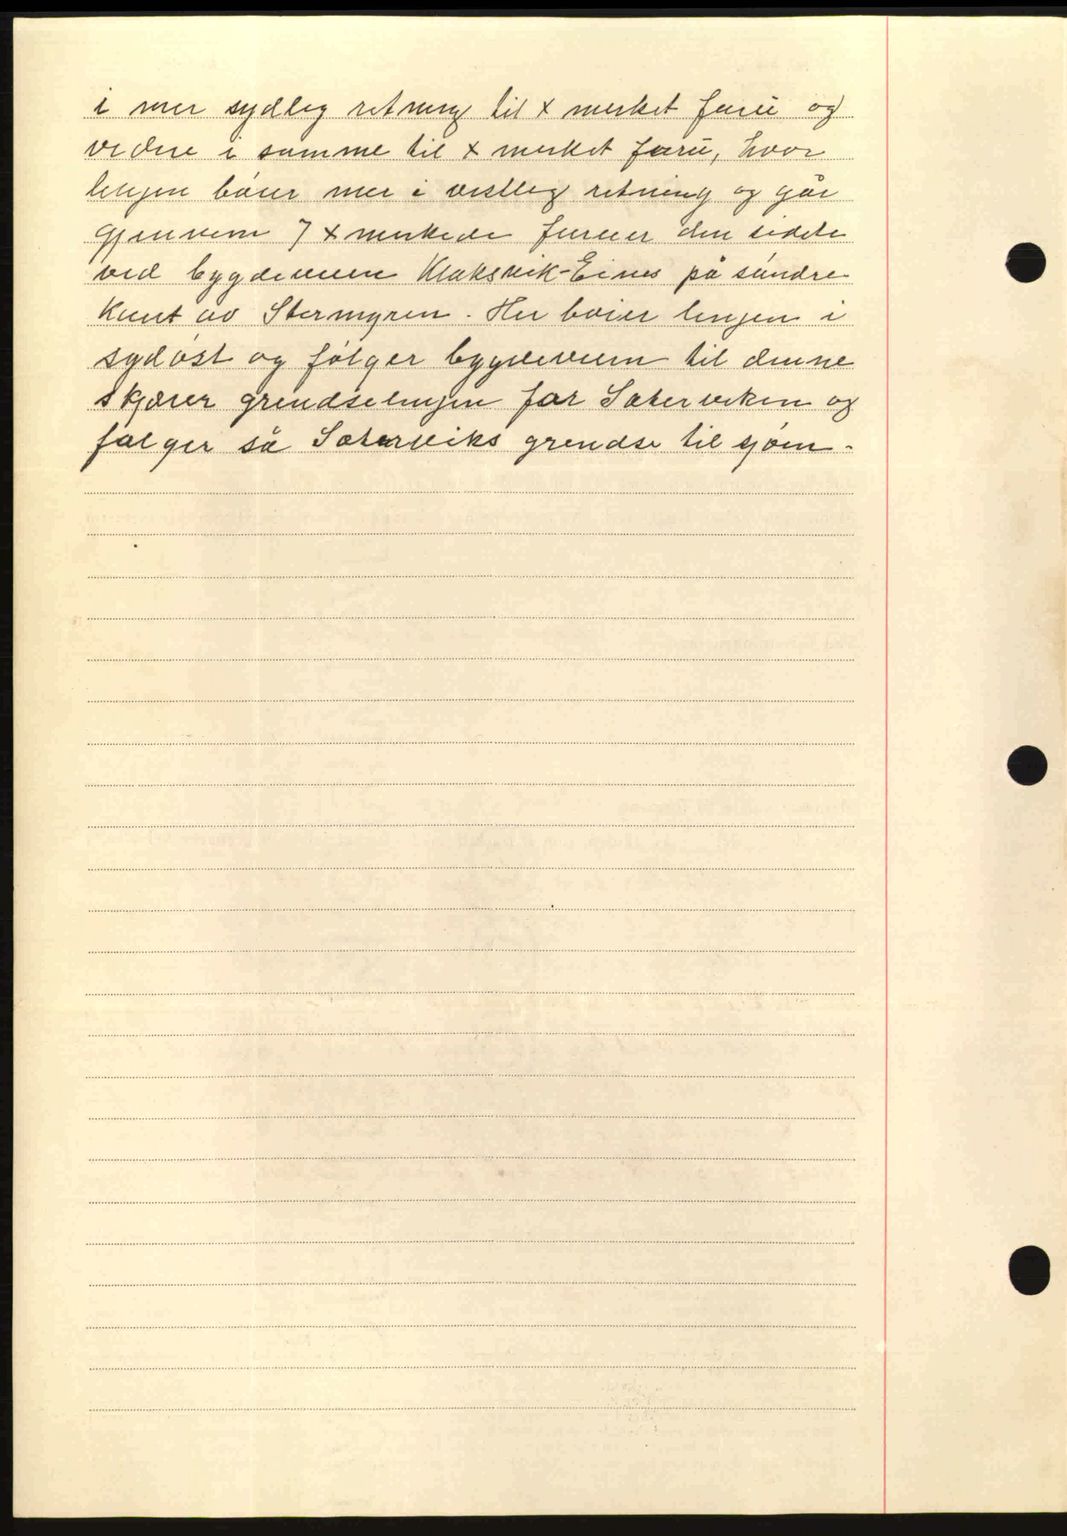 i mer sydlig retning til x merket furu og
videre i samme til x merket furu, hvor
linjen bóier mer i vestlig retning og går
gjennem 7 x merkede furuer den sidste
ved bygdeveien Klaksvik-Eines på sóndre
kant av Stormyren. Her bóier linjen i
sydóst og fólger bygdeveien til denne
skjærer grendselinjen for Sæterviken og
fólger så Sæterviks grendse til sjóen.